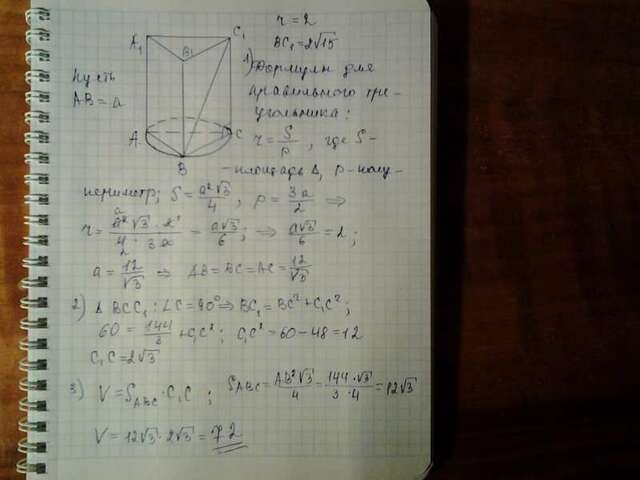 r = 2
BC₁ = 2√15
A₁
B₁
C₁
A
B
C
Пусть
AB = a
1) Формулы для
правильного тре-
угольника:
r = S/p , где S -
- площадь Δ, p - полу-
периметр; S = a²√3/4 , p = 3a/2 ⇒
r = a²√3 · 2/4 · 3a = a√3/6 ; ⇒ a√3/6 = 2 ;
a = 12/√3 ⇒ AB = BC = AC = 12/√3
2) Δ BCC₁ : ∠C = 90° ⇒ BC₁ = BC² + C₁C² ;
60 = 144/3 + C₁C² ; C₁C² = 60 - 48 = 12
C₁C = 2√3
3) V = S_ABC · C₁C ; S_ABC = AB²√3/4 = 144 · √3/3 · 4 = 12√3
V = 12√3 · 2√3 = 72